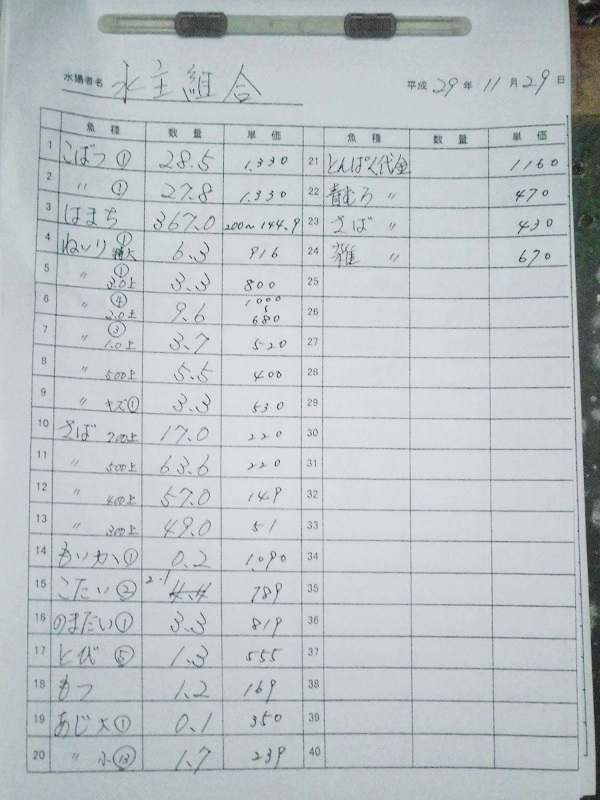 水揚者名 水主組合
平成 29年 11月 29日
魚種 数量 単価 魚種 数量 単価
1 こばつ① 28.5 1,330 21 とんぱく代金 1160
2 〃 ① 27.8 1,330 22 青むろ 〃 470
3 はまち 367.0 200〜144.9 23 さば 〃 430
4 ねいり ① 特大 6.3 916 24 雑 〃 670
5 〃 ① 3.0上 3.3 800 25
6 〃 ④ 2.0上 9.6 1000 〜 680 26
7 〃 ③ 1.0上 3.7 520 27
8 〃 500上 5.5 400 28
9 〃 キズ① 3.3 530 29
10 さば 700上 17.0 220 30
11 〃 500上 63.6 220 31
12 〃 400上 57.0 149 32
13 〃 300上 49.0 51 33
14 もいか① 0.2 1,090 34
15 こたい② 2.1 789 35
16 のまだい① 3.3 819 36
17 とび⑤ 1.3 555 37
18 もつ 1.2 169 38
19 あじ大① 0.1 350 39
20 〃 小⑬ 1.7 239 40